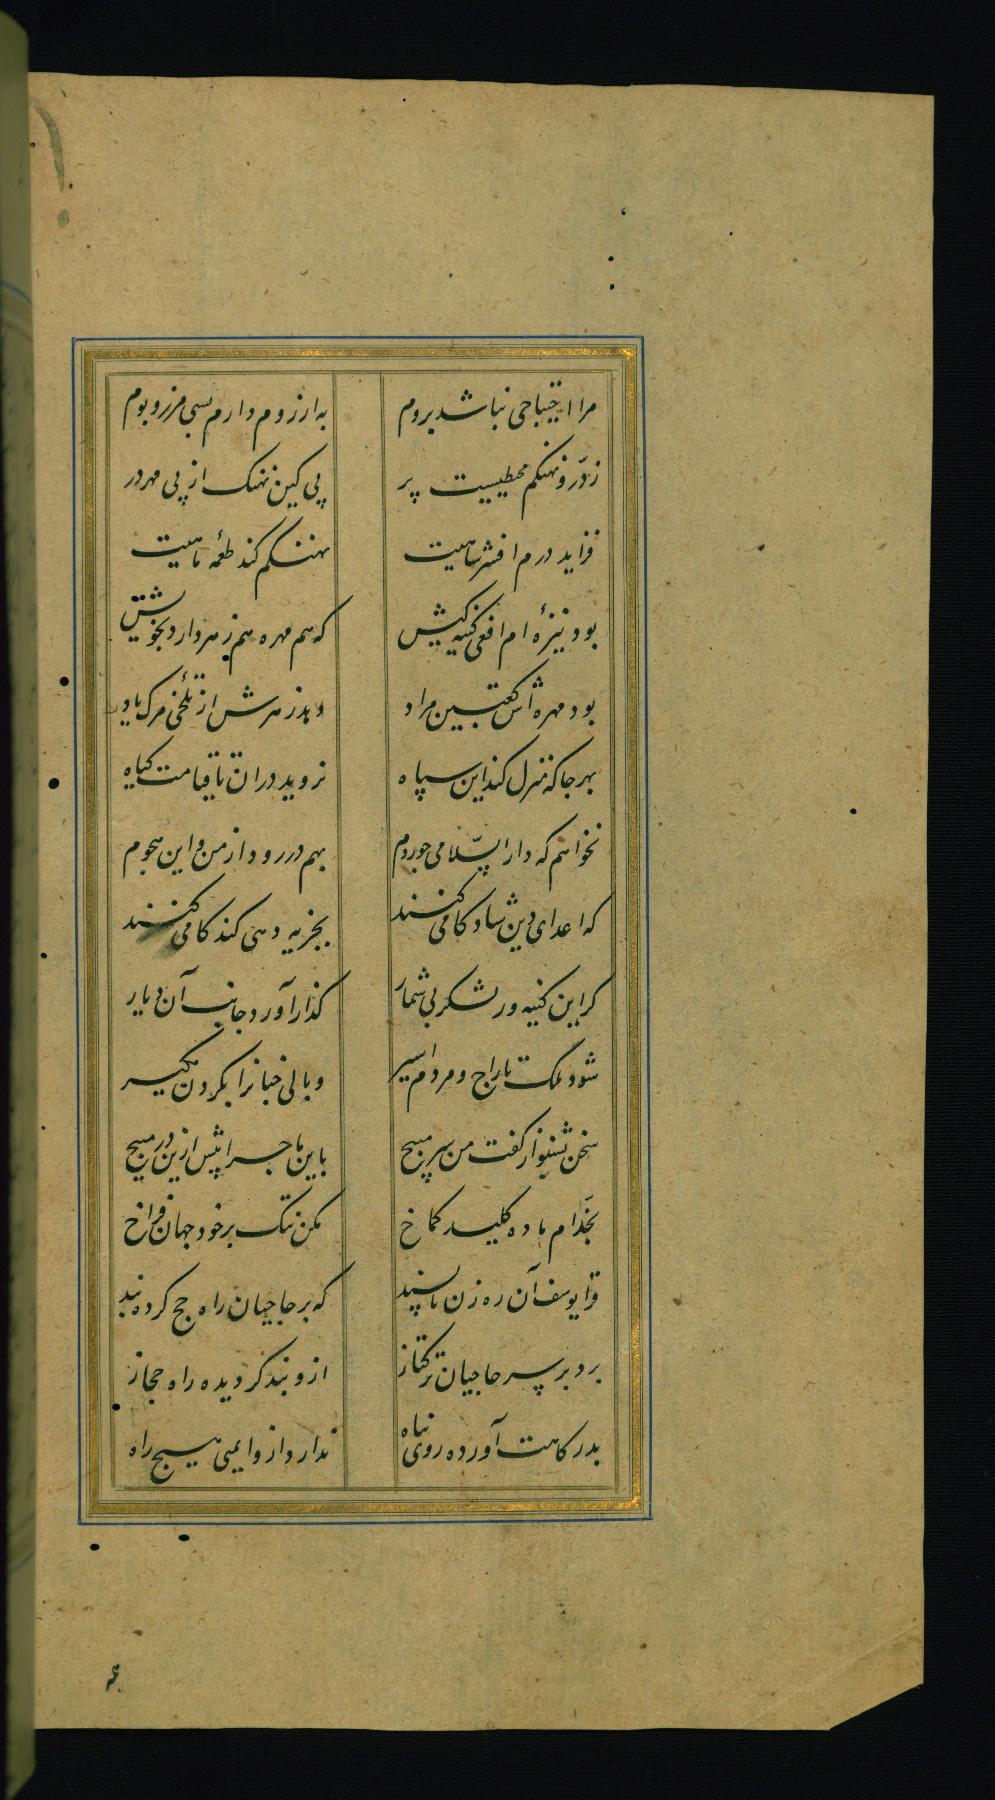 مرا احتیاجی نباشد بروم به از روم دارم بسی مرز و بوم
ز درّ و نهنگم محیطیست پر پی کین نهنک از پی مهر در
فزاید درم افسر شاهیت نهنگم کند طعمهٔ ماهیت
بود نیزهٔ ام افعی کینه کیش که هم مهره هم زهر دارد بخویش
بود مهره اش کعبتین مراد دهد زهرش از تلخی مرک یاد
بهر جا که منزل کند این سپاه نروید در ان تا قیامت کیاه
نخواهم که دار السّلامی چو روم بهم در رود از من و این هجوم
که اعدای دین شاد کامی کنند بجزیه دهی کند کامی کنند
کر این کینه ور لشکر بی شمار کذار آورد جانب آن دیار
شود ملک تاراج و مردم اسیر وبالی خبانرا بکردن مکیر
سخن بشنو از کفت من سر مپیچ باین ماجرا پیش ازین در مپیچ
بخدّام ما ده کلید کماخ مکن تنک بر خود جهان فراخ
قرا یوسف آن ره زن ناپسند که بر حاجیان راه حج کرده بند
برد بر سر حاجیان ترکتاز ازو بند کردیده راه حجاز
بدرکاهت آورده روی پناه ندارد ازو ایمنی هیچ راه